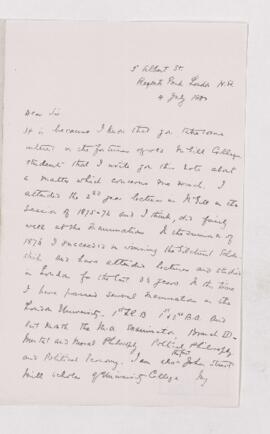 5 Albert St.
Regents Park London N.W.
4 July 1880
Dear Sir
It is because I know that you take some
interest in the fortunes of old McGill College
students that I write you this note about
a matter which concerns me much. I
attended the 2nd year lectures in McGill in the
Session of 1875-76 and I think, did fairly
well at the Examinations. In the summer of
1876 I succeeded in winning the Gilchrist Schlar
ship and have attended lectures and studied
in London for the last 3½ years. In the time
I have passed several Examinations in the
London University. 1st B.A. and
last month the M.A. Examination Branch III.
Mental and Moral Philosophy Political Philosophy
and Political Economy. I am also the John Stuart
Mill scholar of University College My